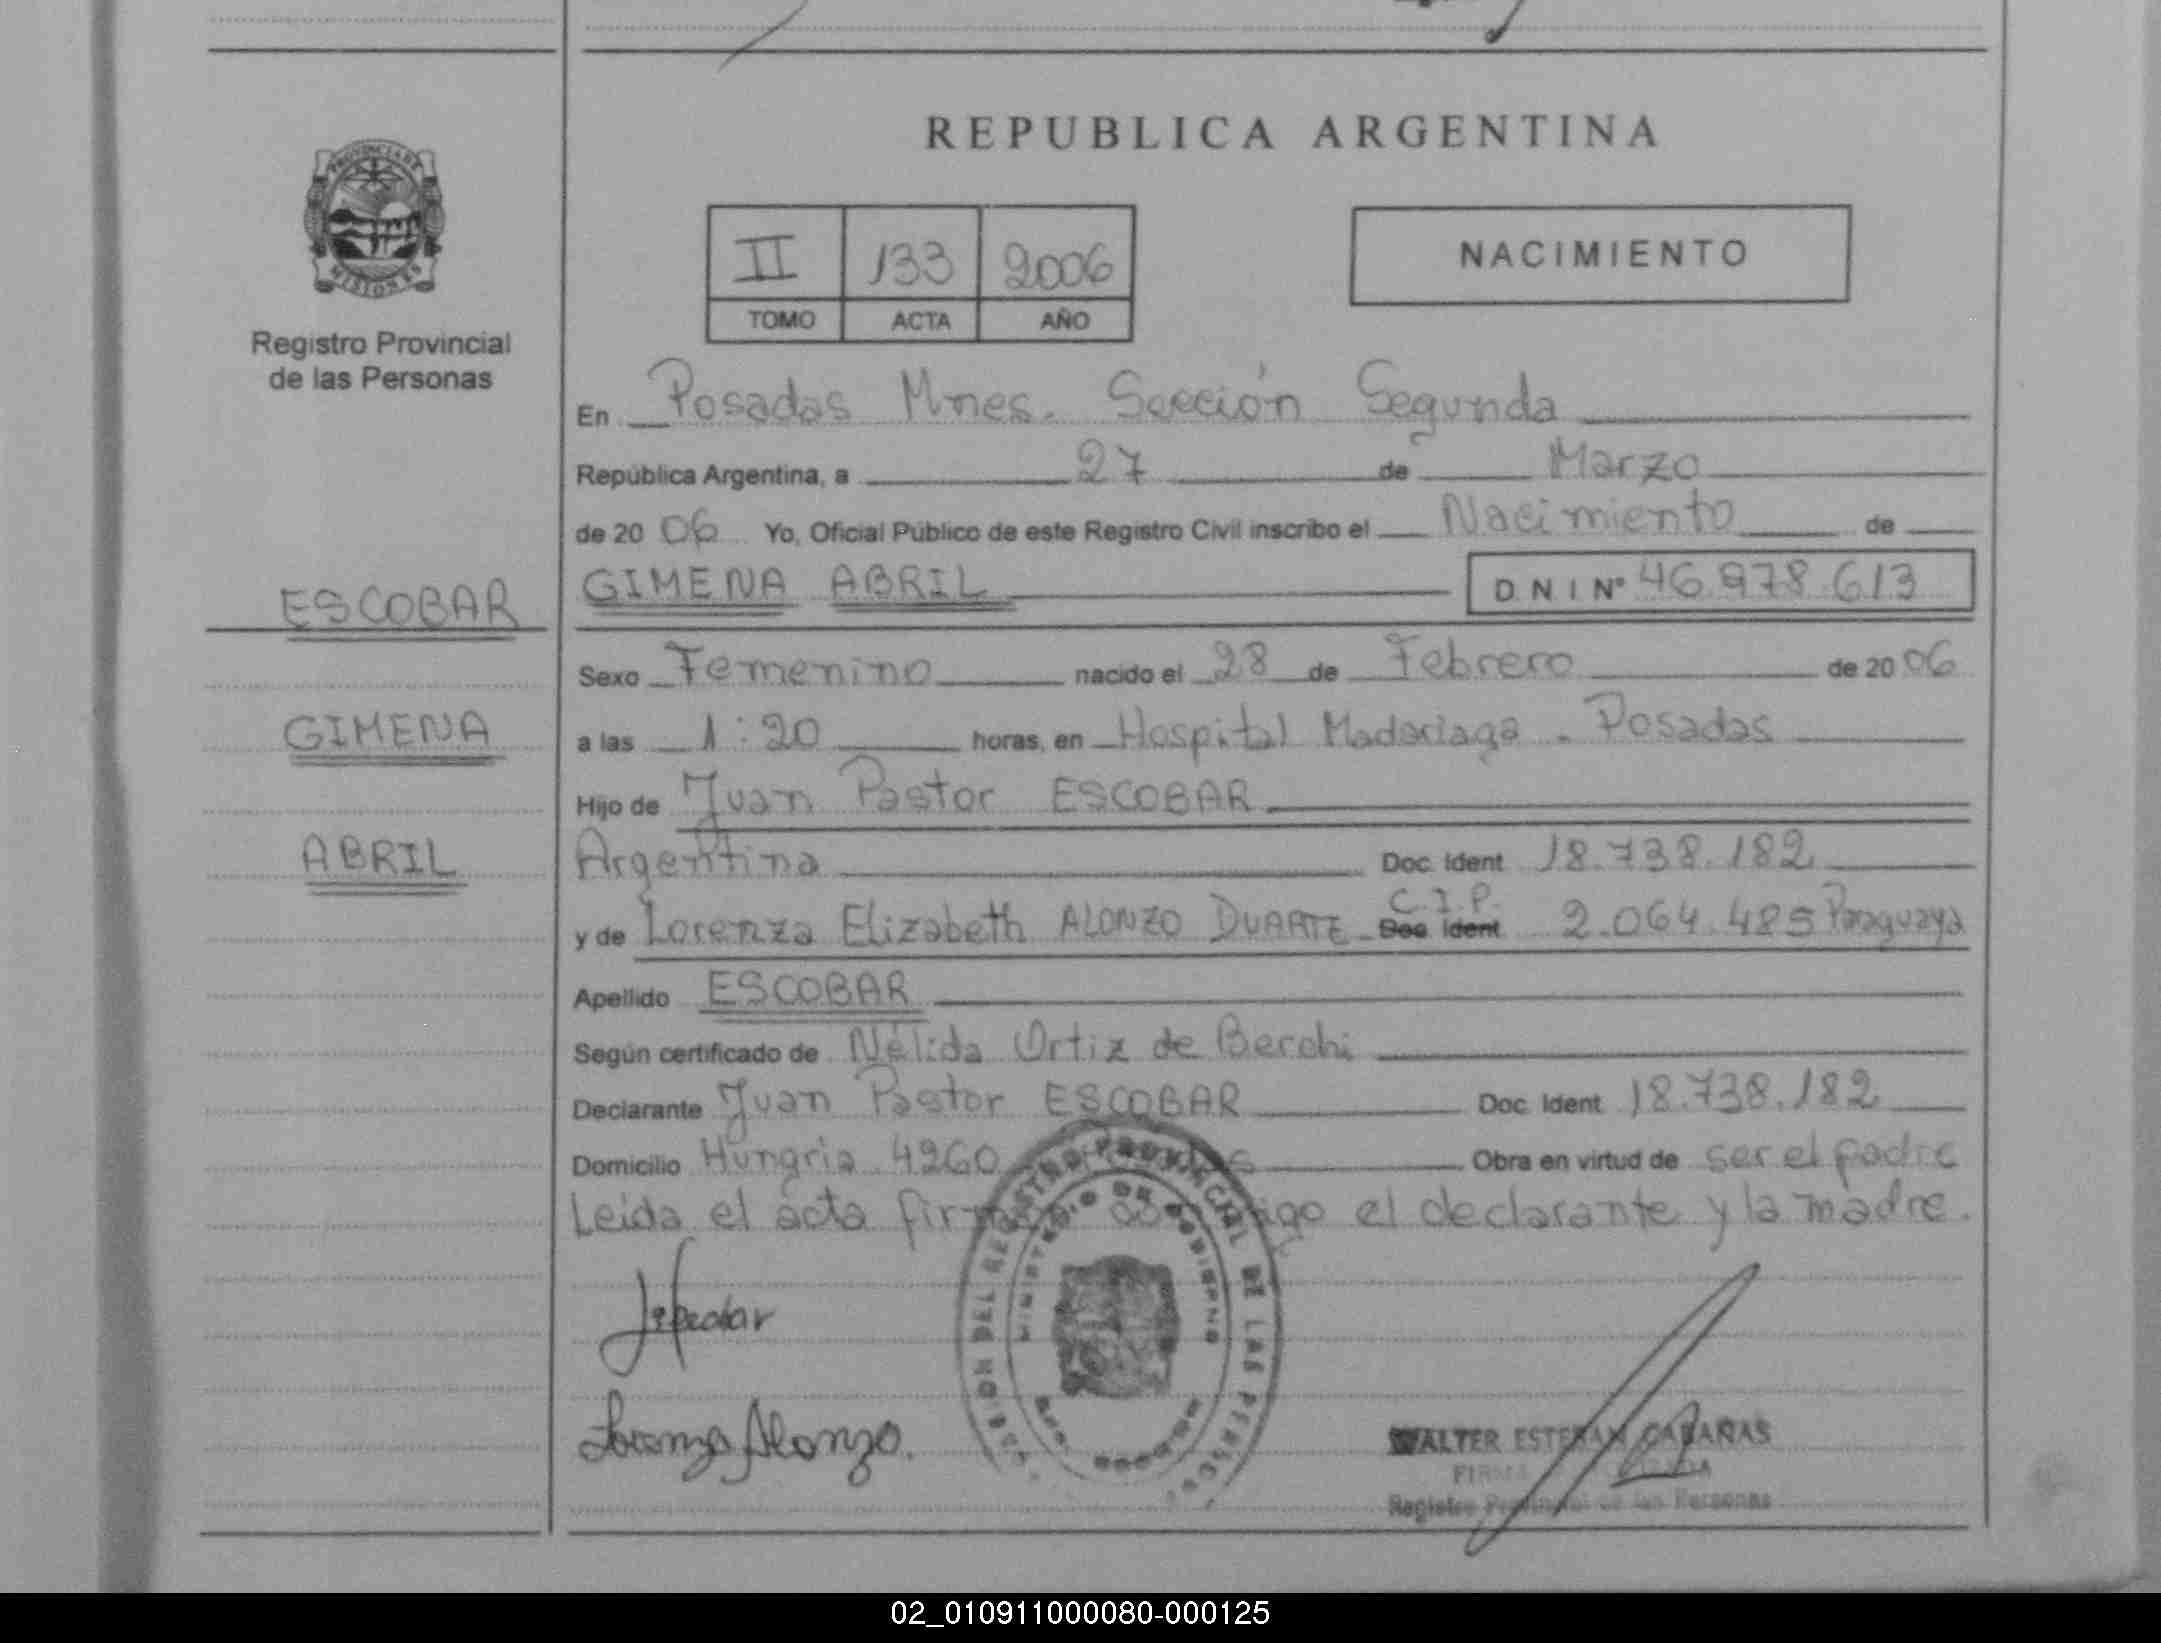 REPUBLICA ARGENTINA
PROVINCIA DE
MISIONES
Registro Provincial
de las Personas
II 133 2006
TOMO ACTA AÑO
NACIMIENTO
En Posadas Mnes. Sección Segunda
República Argentina, a 27 de Marzo
de 20 06 Yo, Oficial Público de este Registro Civil inscribo el Nacimiento de
ESCOBAR
GIMENA ABRIL D.N I Nº 46.978.613
Sexo Femenino nacido el 28 de Febrero de 20 06
GIMENA
a las 1:20 horas, en Hospital Madariaga - Posadas
Hijo de Juan Pastor ESCOBAR
ABRIL
Argentina Doc. Ident 18.738.182
y de Lorenza Elizabeth ALONZO DUARTE - Doc. Ident C.I.P. 2.064.485 Paraguaya
Apellido ESCOBAR
Según certificado de Nélida Ortiz de Berchi
Declarante Juan Pastor ESCOBAR Doc. Ident 18.738.182
Domicilio Hungria 4260 Obra en virtud de ser el padre
Leida el acta el declarante y la madre.
REGISTRO PROVINCIAL DE LAS
MINISTERIO DE GOBIERNO
Lorenza Alonzo.
WALTER ESTEBAN CABAÑAS
Registro Provincial de las Personas
02_010911000080-000125